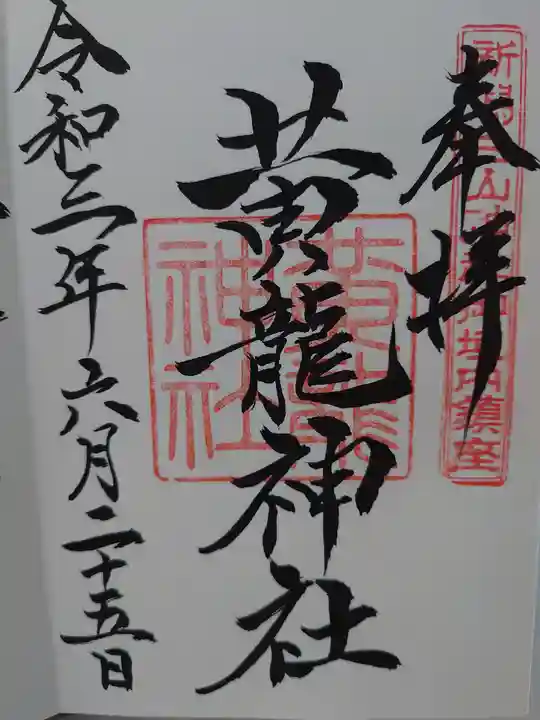 奉拝
新潟白山神社御境内鎮座
黄龍神社
黄龍神社
令和三年六月二十五日